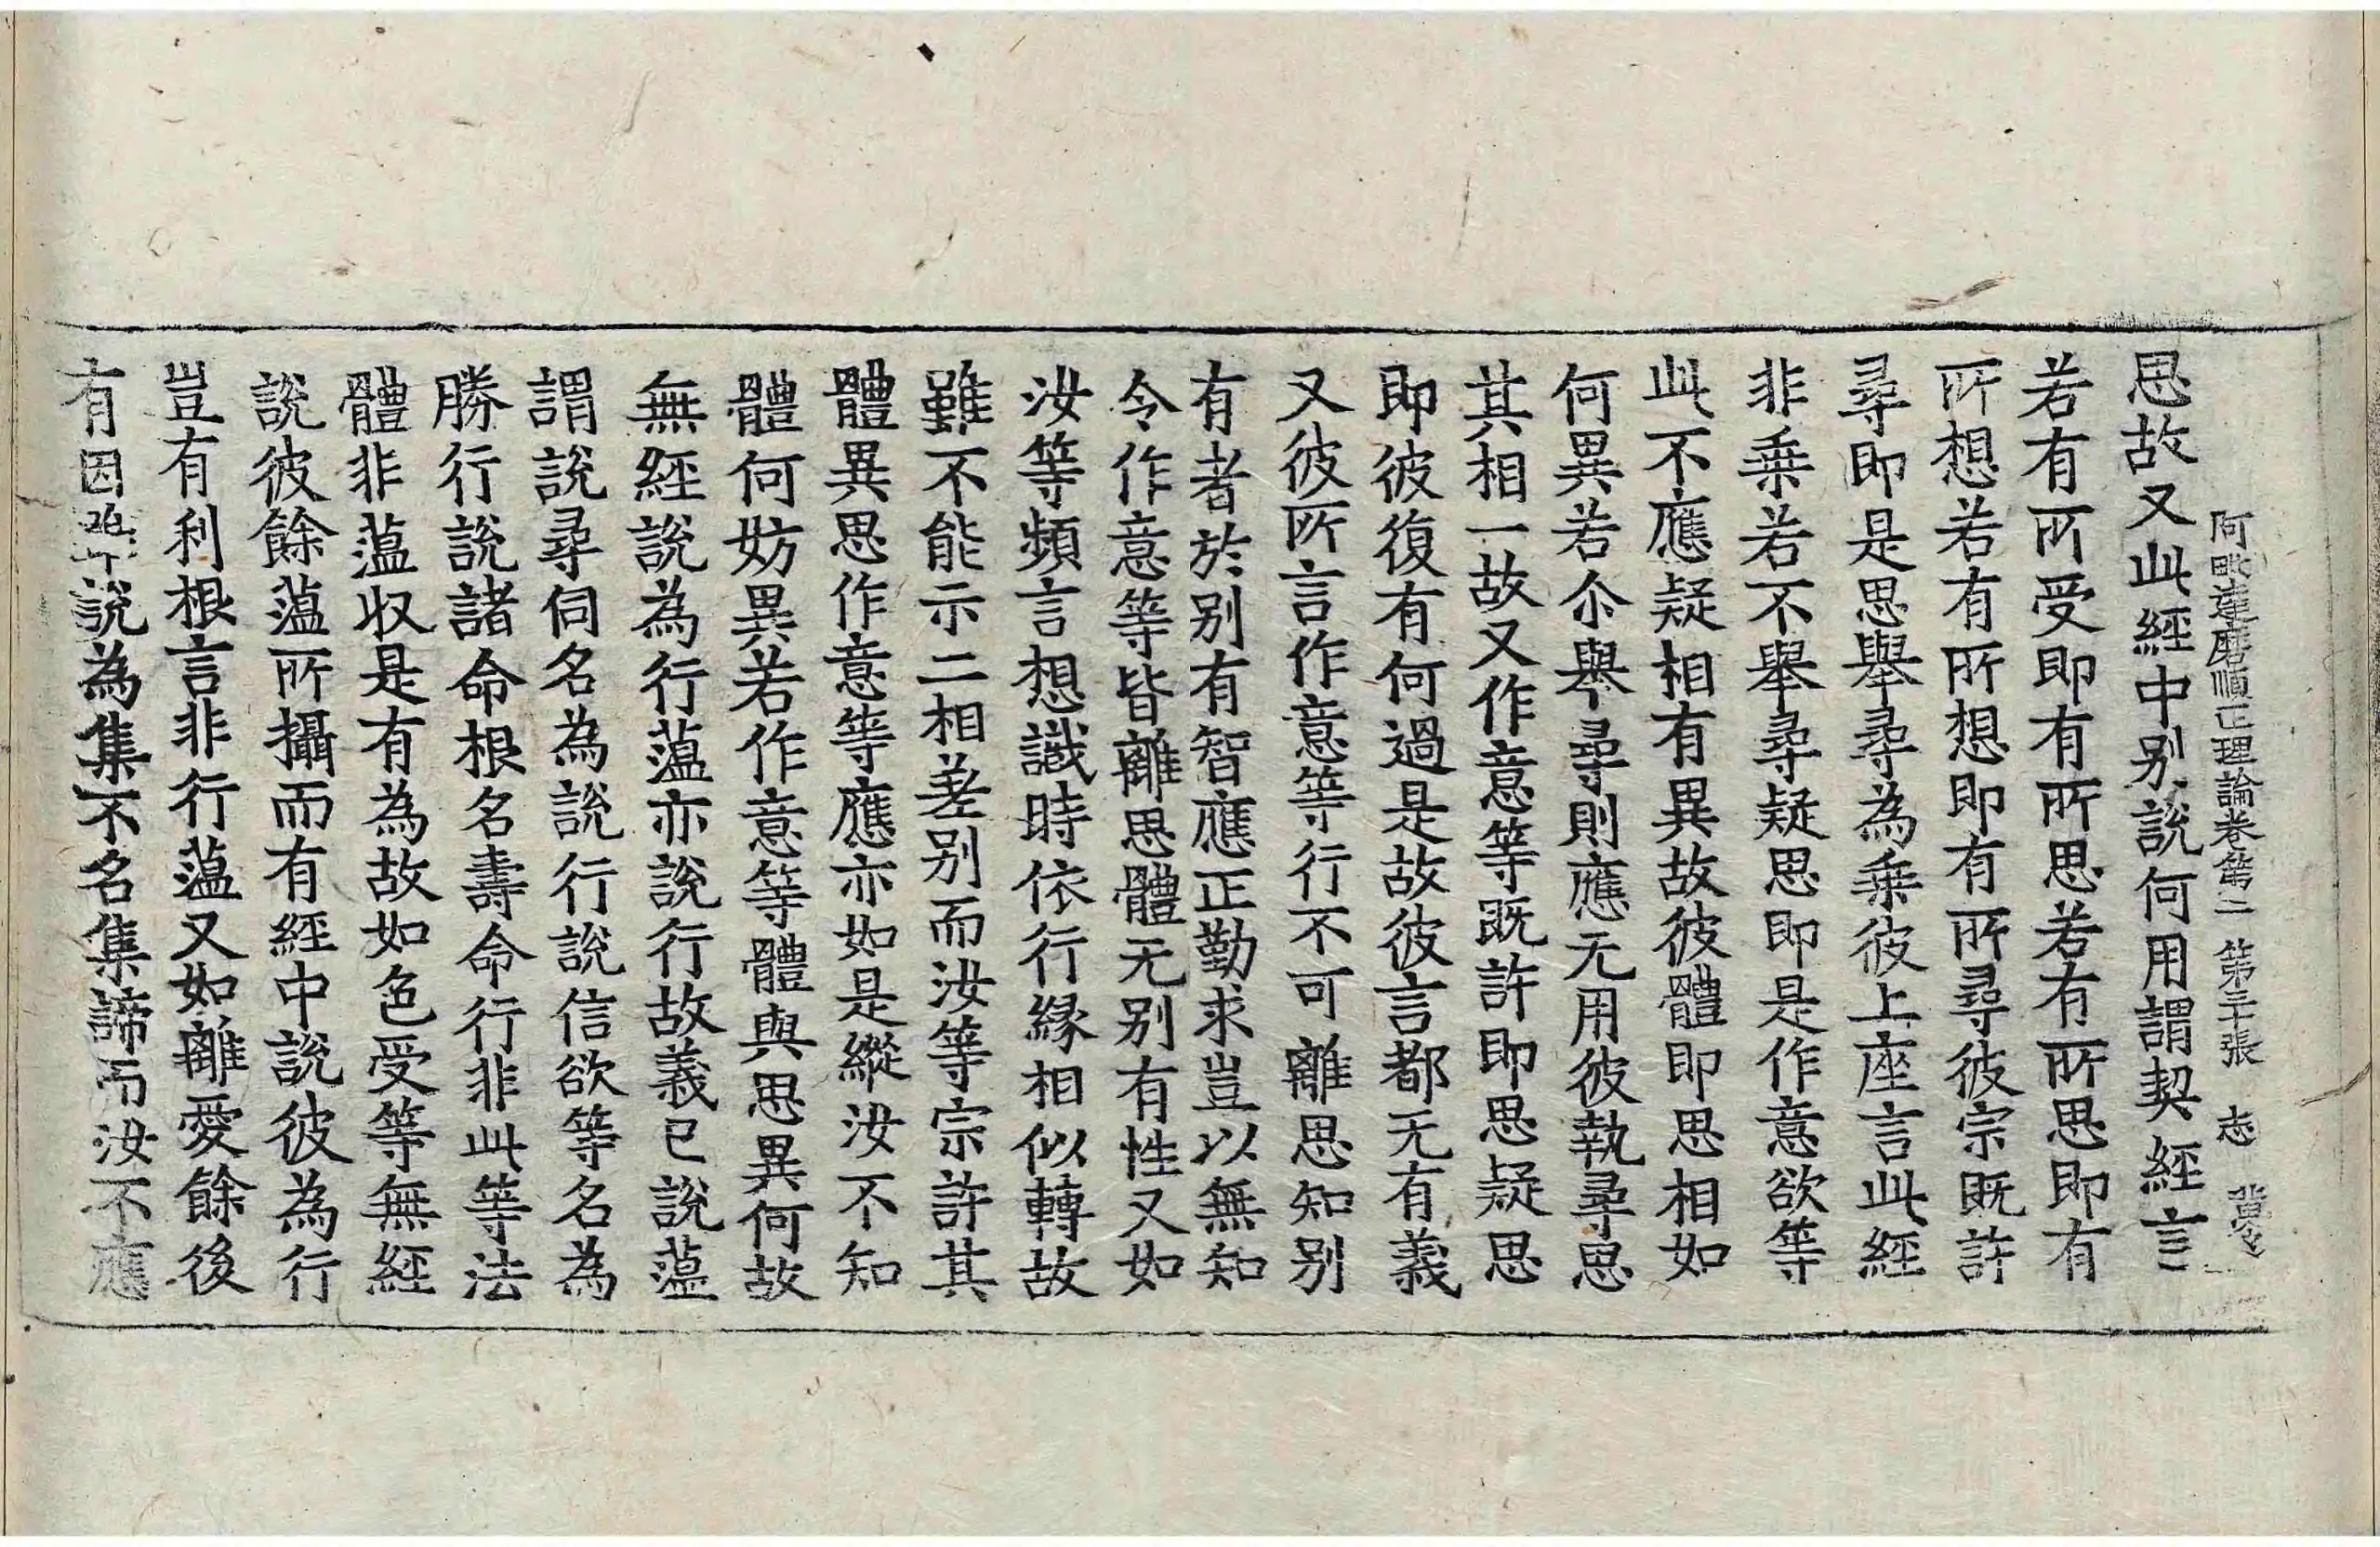 阿毗達磨順正理論卷第二 第三十張 志
思故又此經中別說何用謂契經言
若有所受即有所思若有所思即有
所想若有所想即有所尋彼宗既許
尋即是思舉尋為乘彼上座言此經
非乘若不舉尋疑思即是作意欲等
此不應疑相有異故彼體即思相如
何異若尒舉尋則應无用彼執尋思
其相一故又作意等既許即思疑思
即彼復有何過是故彼言都无有義
又彼所言作意等行不可離思知別
有者於別有智應正勤求豈以無知
令作意等皆離思體无別有性又如
汝等頻言想識時依行緣相似轉故
雖不能示二相差別而汝等宗許其
體異思作意等應亦如是縱汝不知
體何妨異若作意等體與思異何故
無經說為行蘊亦說行故義已說蘊
謂說尋伺名為說行說信欲等名為
勝行說諸命根名壽命行非此等法
體非蘊收是有為故如色受等無經
說彼餘蘊所攝而有經中說彼為行
豈有利根言非行蘊又如離愛餘後
有因說為集不名集諦而汝不應